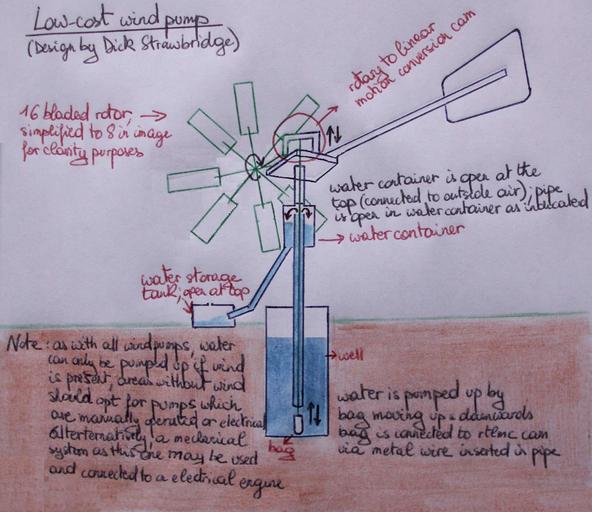 Low-cost wind pump
(Design by Dick Strawbridge)
rotary to linear
motion conversion cam
16 bladed rotor,
simplified to 8 in image
for clarity purposes
water container is open at the
top (connected to outside air); pipe
is open in water container as indicated
water container
water storage
tank; open at top
well
Note: as with all windpumps, water
can only be pumped up if wind
is present, areas without wind
should opt for pumps which
are manually operated or electrical
Alternatively, a mechanical
system as this one may be used
and connected to a electrical engine
water is pumped up by
bag moving up & downwards
bag is connected to rtlmc cam
via metal wire inserted in pipe
bag